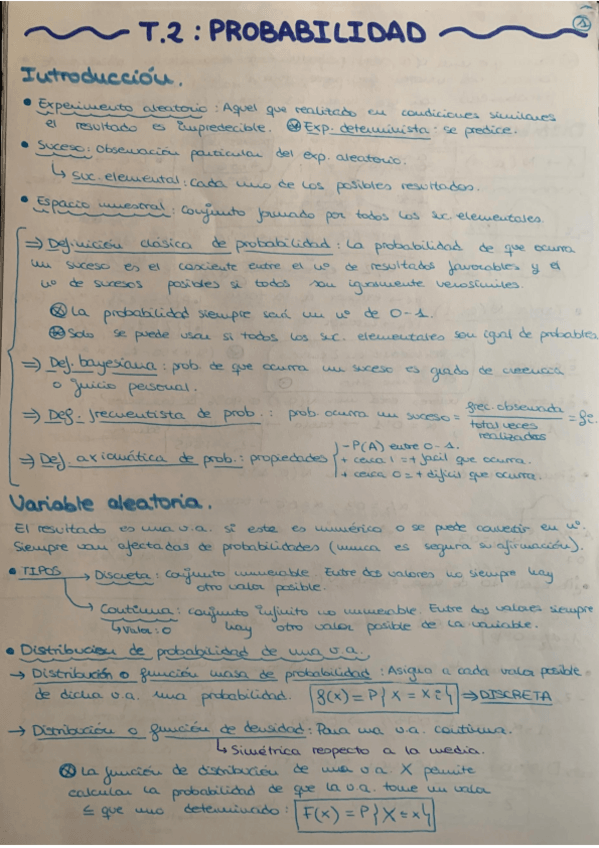 1
T.2 : PROBABILIDAD
Introducción.
• Experimento aleatorio : Aquel que realizado en condiciones similares
el resultado es impredecible. ⊛ Exp. determinista : se predice.
• Suceso : Observación particular del exp. aleatorio.
↳ suc. elemental : Cada uno de los posibles resultados.
• Espacio muestral : Conjunto formado por todos los suc. elementales.
⇒ Definición clásica de probabilidad : La probabilidad de que ocurra
un suceso es el cociente entre el nº de resultados favorables y el
nº de sucesos posibles si todos son igualmente verosímiles.
⊗ La probabilidad siempre será un nº de 0-1.
⊛ Solo se puede usar si todos los suc. elementales son igual de probables
⇒ Def. bayesiana : prob. de que ocurra un suceso es grado de creencia
o juicio personal.
⇒ Def. frecuentista de prob. : prob. ocurra un suceso = frec. observada / total veces realizadas = fi.
⇒ Def. axiomática de prob. : propiedades { - P(A) entre 0-1.
+ cerca 1 = + fácil que ocurra.
+ cerca 0 = + difícil que ocurra.
Variable aleatoria.
El resultado es una v.a. si este es numérico o se puede convertir en nº.
Siempre van afectadas de probabilidades (nunca es segura su afirmación).
• TIPOS → Discreta : Conjunto numerable. Entre dos valores no siempre hay
otro valor posible.
↳ Continua : conjunto infinito no numerable. Entre dos valores siempre
↳ Valor : 0 hay otro valor posible de la variable.
• Distribución de probabilidad de una v.a.
→ Distribución o función masa de probabilidad : Asigna a cada valor posible
de dicha v.a. una probabilidad. f(x) = P{X = xi} ⇒ DISCRETA
→ Distribución o función de densidad : Para una v.a. continua.
↳ Simétrica respecto a la media.
⊗ La función de distribución de una v.a. X permite
calcular la probabilidad de que la v.a. tome un valor
≤ que uno determinado : F(x) = P{X ≤ x}